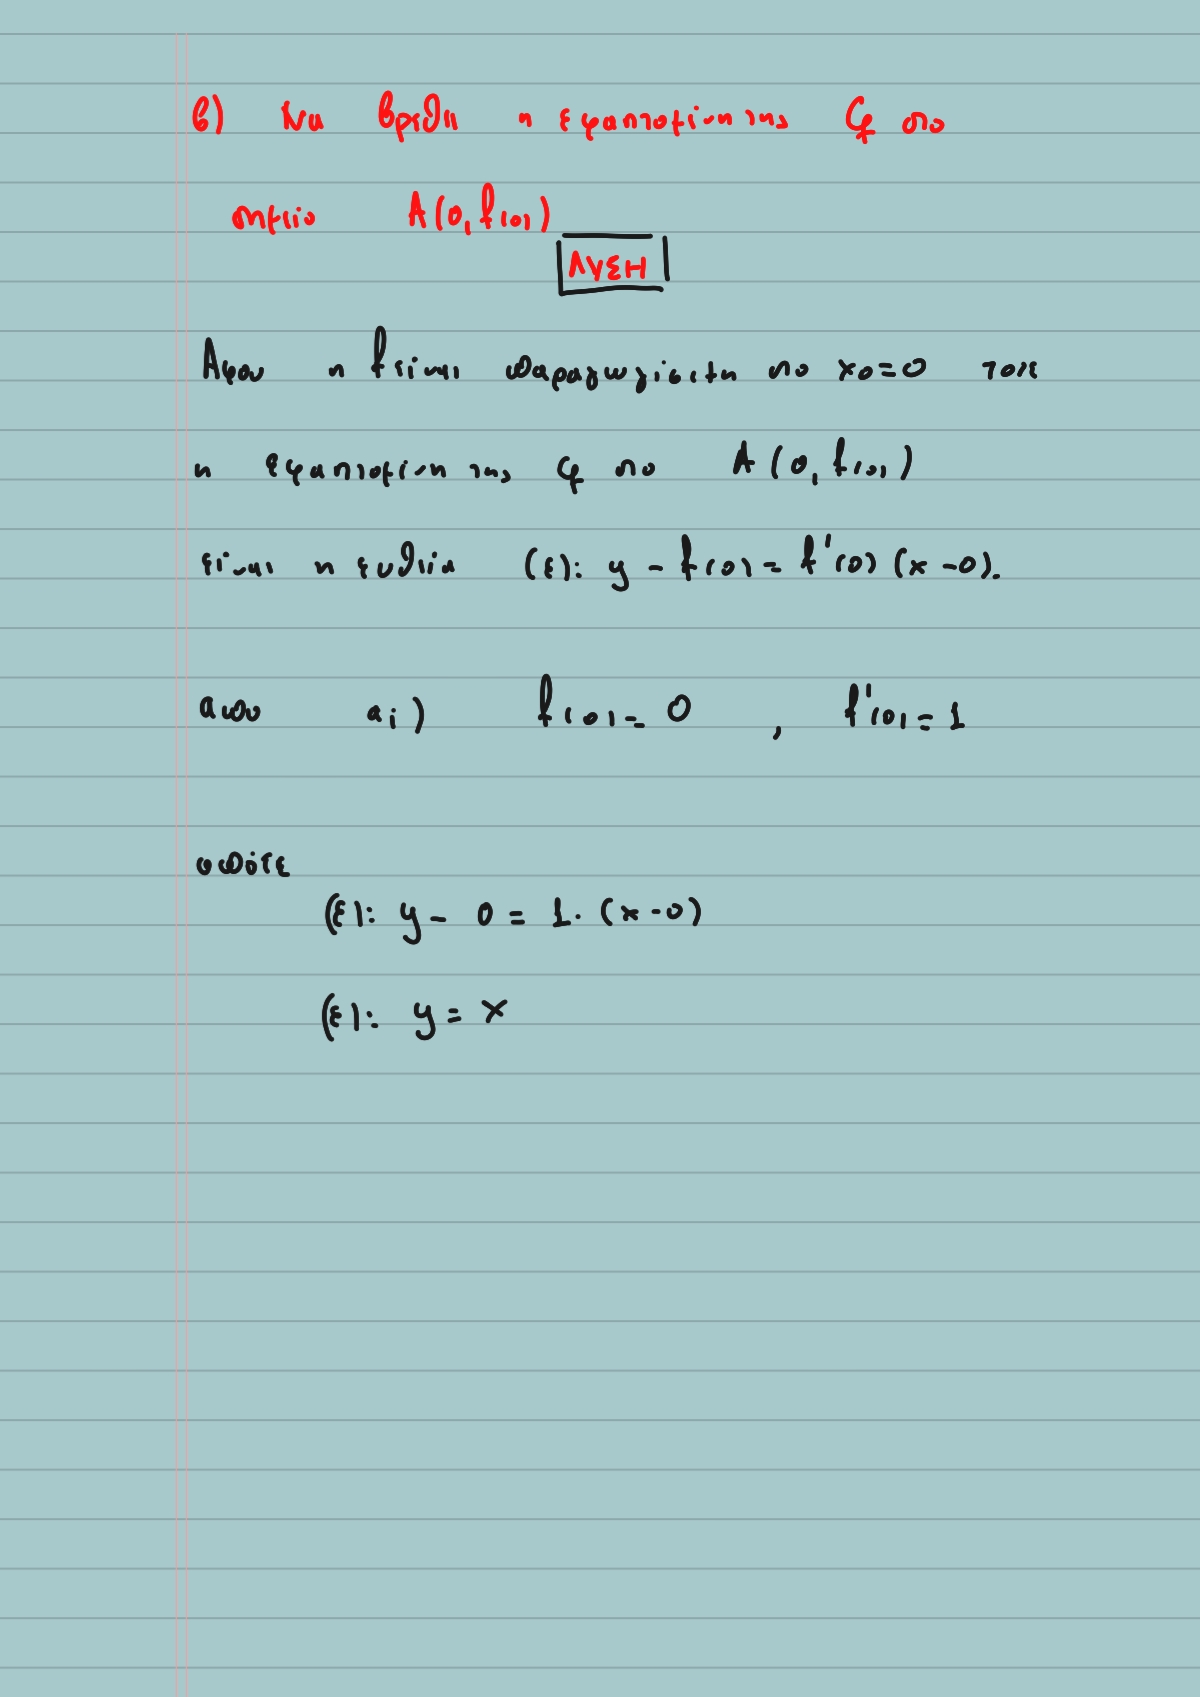 β) Να βρεθει η εφαπτομενη της Cf στο
σημειο A(0, f(0))
ΛΥΣΗ
Αφου η f ειναι παραγωγισιμη στο x0=0 τοτε
η εφαπτομενη της Cf στο A(0, f(0))
ειναι η ευθεια (ε): y - f(0) = f'(0) (x-0).
απο αi) f(0) = 0 , f'(0) = 1
οποτε
(ε): y - 0 = 1· (x-0)
(ε): y = x